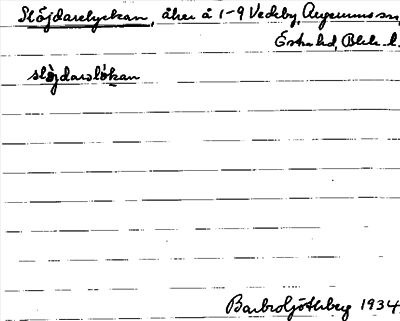 Slöjdarelyckan, åker å 1-9 Vedeby, Augerums sn,
Östra hd, Blek. l.
slöjdarslökan
Barbro Göthberg 1934